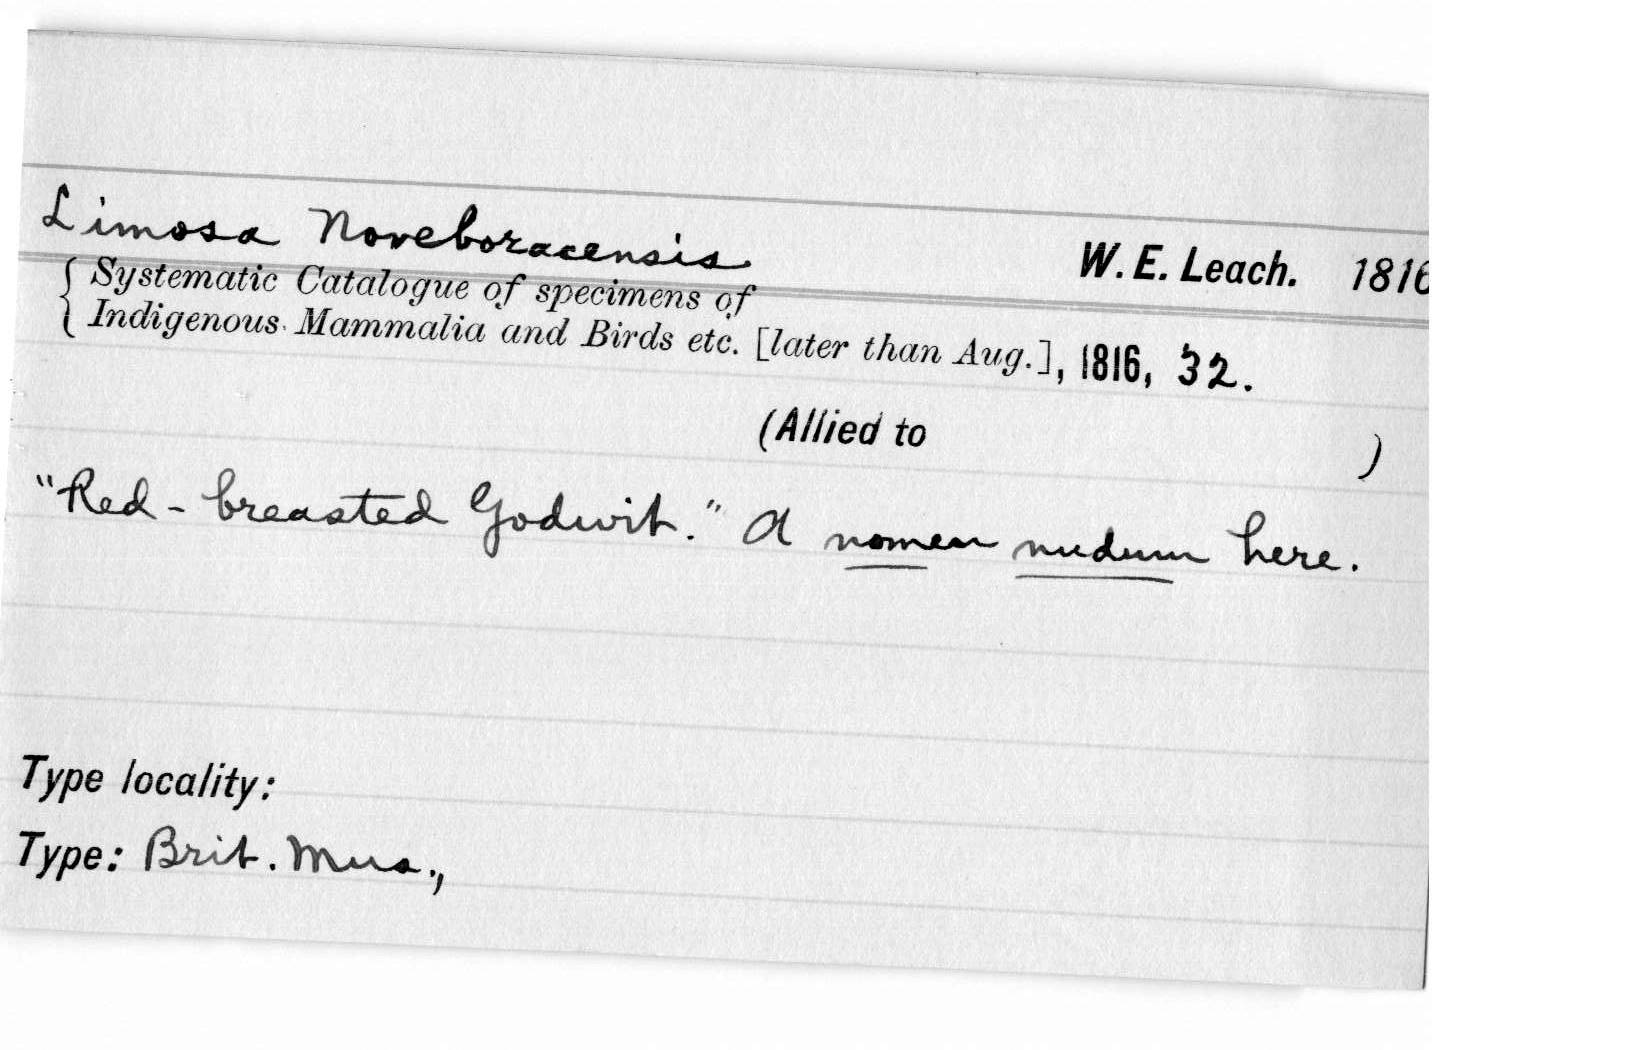 Limosa Noveboracensis W. E. Leach. 1816
{ Systematic Catalogue of specimens of
Indigenous Mammalia and Birds etc. [later than Aug.], 1816, 32.
(Allied to )
"Red-breasted Godwit." A nomen nudum here.
Type locality:
Type: Brit. Mus.,